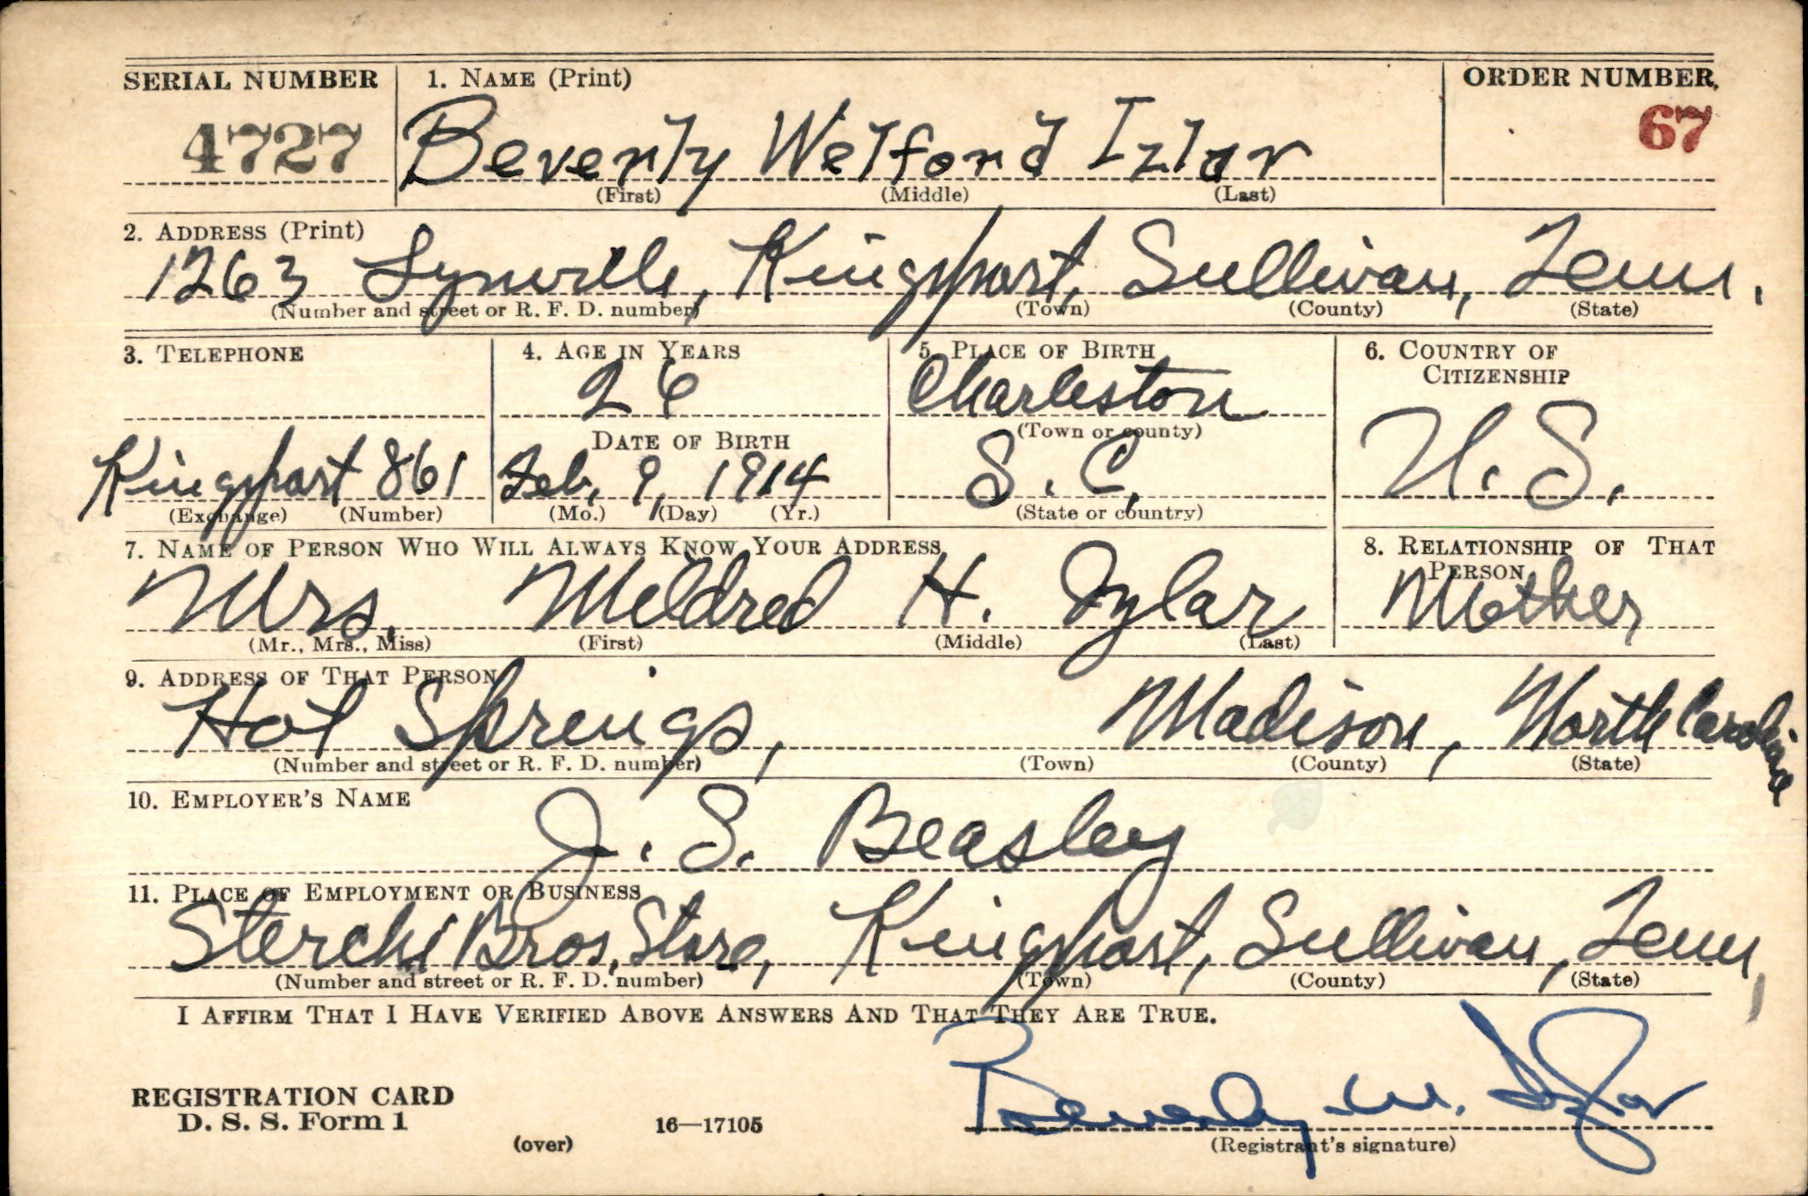 SERIAL NUMBER 1. NAME (Print) ORDER NUMBER
4727 Beverly Welford Izlar 67
(First) (Middle) (Last)
2. ADDRESS (Print)
1263 Lynville, Kingsport, Sullivan, Tenn.
(Number and street or R. F. D. number) (Town) (County) (State)
3. TELEPHONE 4. AGE IN YEARS 5. PLACE OF BIRTH 6. COUNTRY OF
CITIZENSHIP
26 Charleston
DATE OF BIRTH (Town or county)
Kingsport 861 Feb. 9, 1914 S. C. U. S.
(Exchange) (Number) (Mo.) (Day) (Yr.) (State or country)
7. NAME OF PERSON WHO WILL ALWAYS KNOW YOUR ADDRESS 8. RELATIONSHIP OF THAT
PERSON
Mrs. Mildred H. Izlar Mother
(Mr., Mrs., Miss) (First) (Middle) (Last)
9. ADDRESS OF THAT PERSON
Hot Springs, Madison, North Carolina
(Number and street or R. F. D. number) (Town) (County) (State)
10. EMPLOYER'S NAME
J. S. Beasley
11. PLACE OF EMPLOYMENT OR BUSINESS
Sterchi Bros. Store, Kingsport, Sullivan, Tenn.
(Number and street or R. F. D. number) (Town) (County) (State)
I AFFIRM THAT I HAVE VERIFIED ABOVE ANSWERS AND THAT THEY ARE TRUE.
REGISTRATION CARD
D. S. S. Form 1 Beverly W. Izlar
(over) 16—17105 (Registrant's signature)